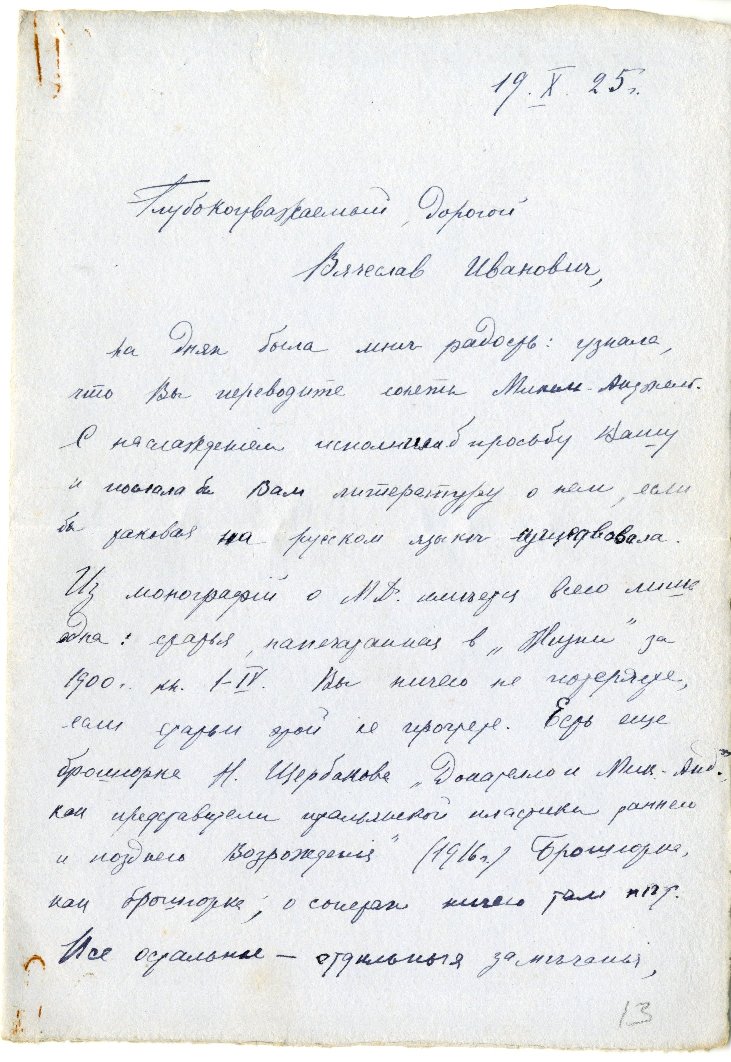 19. X. 25 г.
Глубокоуважаемый, дорогой
Вячеслав Иванович,
на днях была мнѣ радость: узнала,
что Вы переводите сонеты Микель-Анджело.
С наслаждением исполнила б просьбу Вашу
и послала бы Вам литературу о нем, если
бы таковая на русском языкѣ существовала.
Из монографій о МА. имѣется всего лишь
одна: статья, напечатанная в „Жизни" за
1900 г. кн. I-IV. Вы ничего не потеряете,
если статьи этой не прочтете. Есть еще
брошюрка Н. Щербакова „Донателло и Мик.-Андж.
как представители итальянской пластики раннего
и позднего Возрожденія" (1916 г.) Брошюрка,
как брошюрка; о сонетах ничего там нѣт.
Все остальные — отдѣльныя замѣчанья,
13